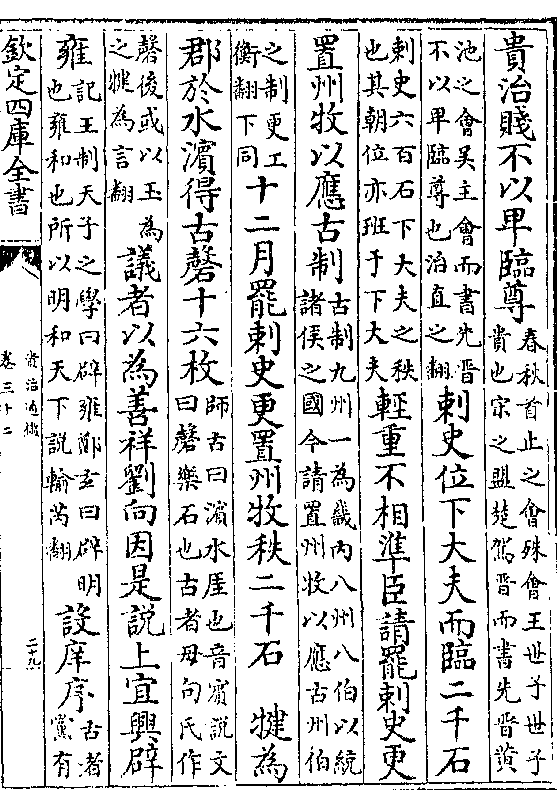 貴治賤不以卑臨尊春秋首止之會殊會王世子世子貴也宋之盟楚駕晉而書先晉黃
池之會吳主會而書先晉不以卑臨尊也治直之翻刺史位下大夫而臨二千石
刺史六百石下大夫之秩也其朝位亦班于下大夫輕重不相準臣請罷刺史更
置州牧以應古制古制九州一為畿內八州八伯以統諸侯之國今請置州牧以應古州伯
之制更工衡翻下同十二月罷刺史更置州牧秩二千石　犍為
郡於水濱得古磬十六枚師古曰濱水厓也音賓說文曰磬樂石也古者毋句氏作
磬後或以玉為之犍為言翻議者以為善祥劉向因是說上宜興辟
雍記王制天子之學曰辟雍鄭玄曰辟明也雍和也所以明和天下說輸芮翻設庠序古者黨有
欽定四庫全書　資治通鑑　卷三十二　二十九